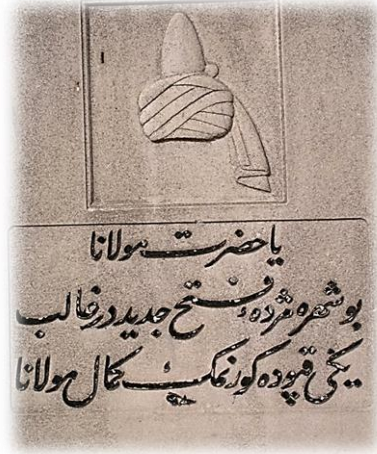 یا حضرت مولانا
بو شهره مژدهٔ فتح جدیددر غالب
یکی قپوده کورنمک کمال مولانا